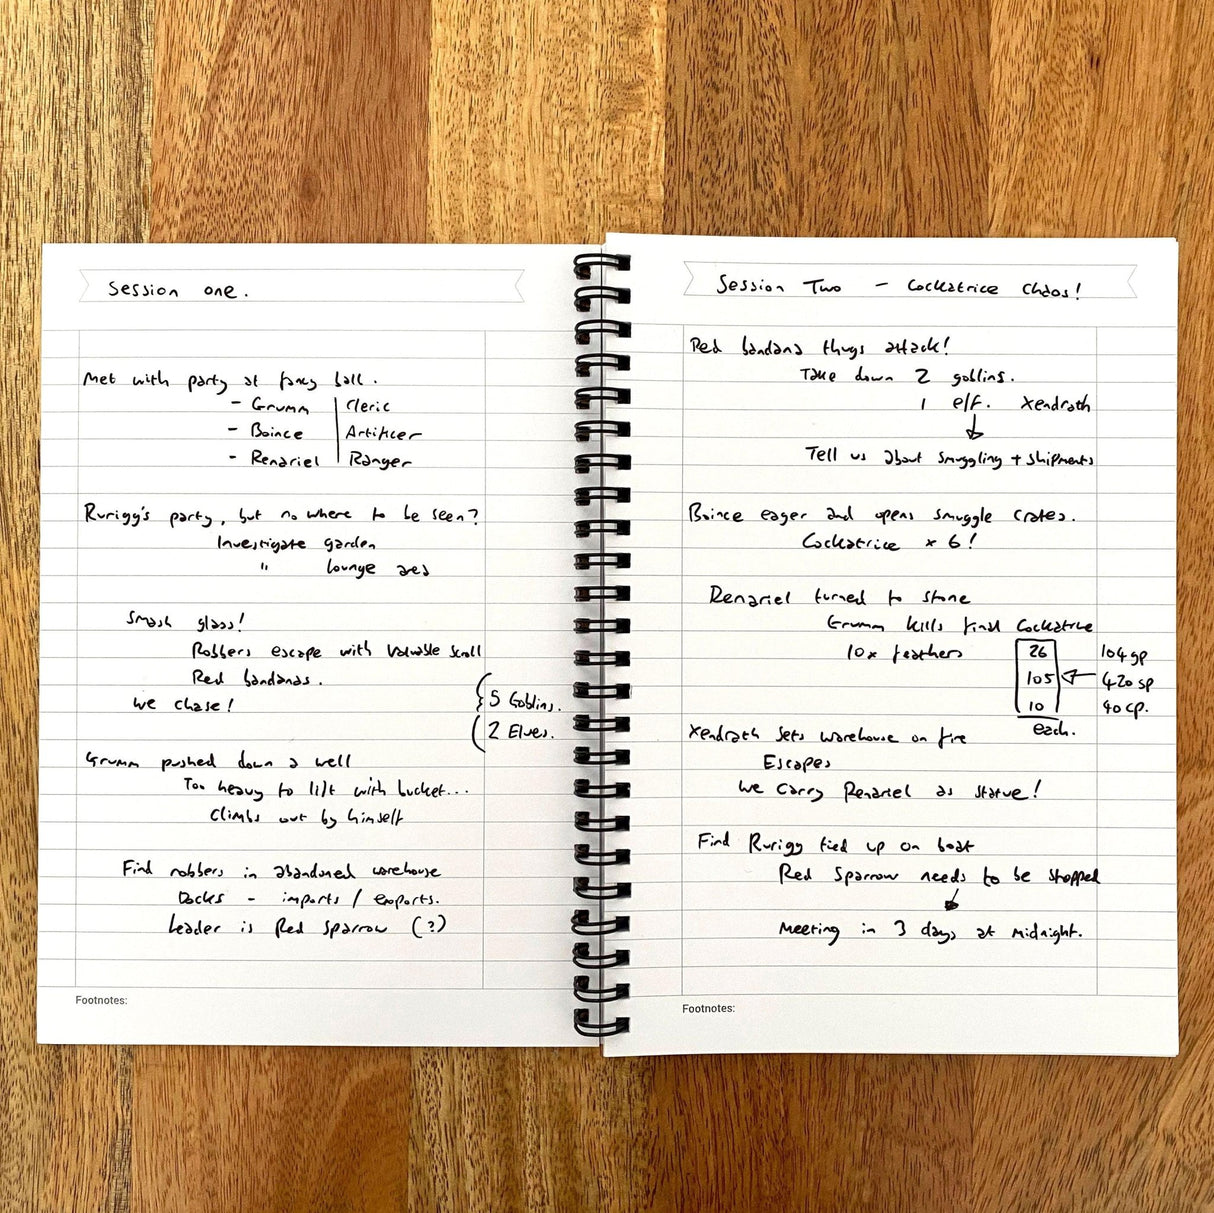 Session one.
Met with party at fancy ball.
- Grumm | Cleric
- Boince | Artificer
- Renariel | Ranger
Rurigg's party, but no where to be seen?
Investigate garden
" lounge area
Smash glass!
Robbers escape with valuable scroll
Red bandanas.
We chase!
5 Goblins.
2 Elves.
Grumm pushed down a well
Too heavy to lift with bucket...
Climbs out by himself
Find robbers in abandoned warehouse
Docks - imports / exports.
Leader is Red Sparrow (?)
Footnotes:
Session Two - Cockatrice chaos!
Red bandana thugs attack!
Take down 2 goblins.
1 elf. Xendrath
Tell us about smuggling + shipments
Boince eager and opens smuggle crates.
Cockatrice x 6!
Renariel turned to stone
Grumm kills final Cockatrice
10x feathers 26 104 gp
105 420 sp
10 40 cp.
each.
Xendrath sets warehouse on fire
Escapes
We carry Renariel as statue!
Find Rurigg tied up on boat
Red Sparrow needs to be stopped
Meeting in 3 days at midnight.
Footnotes: